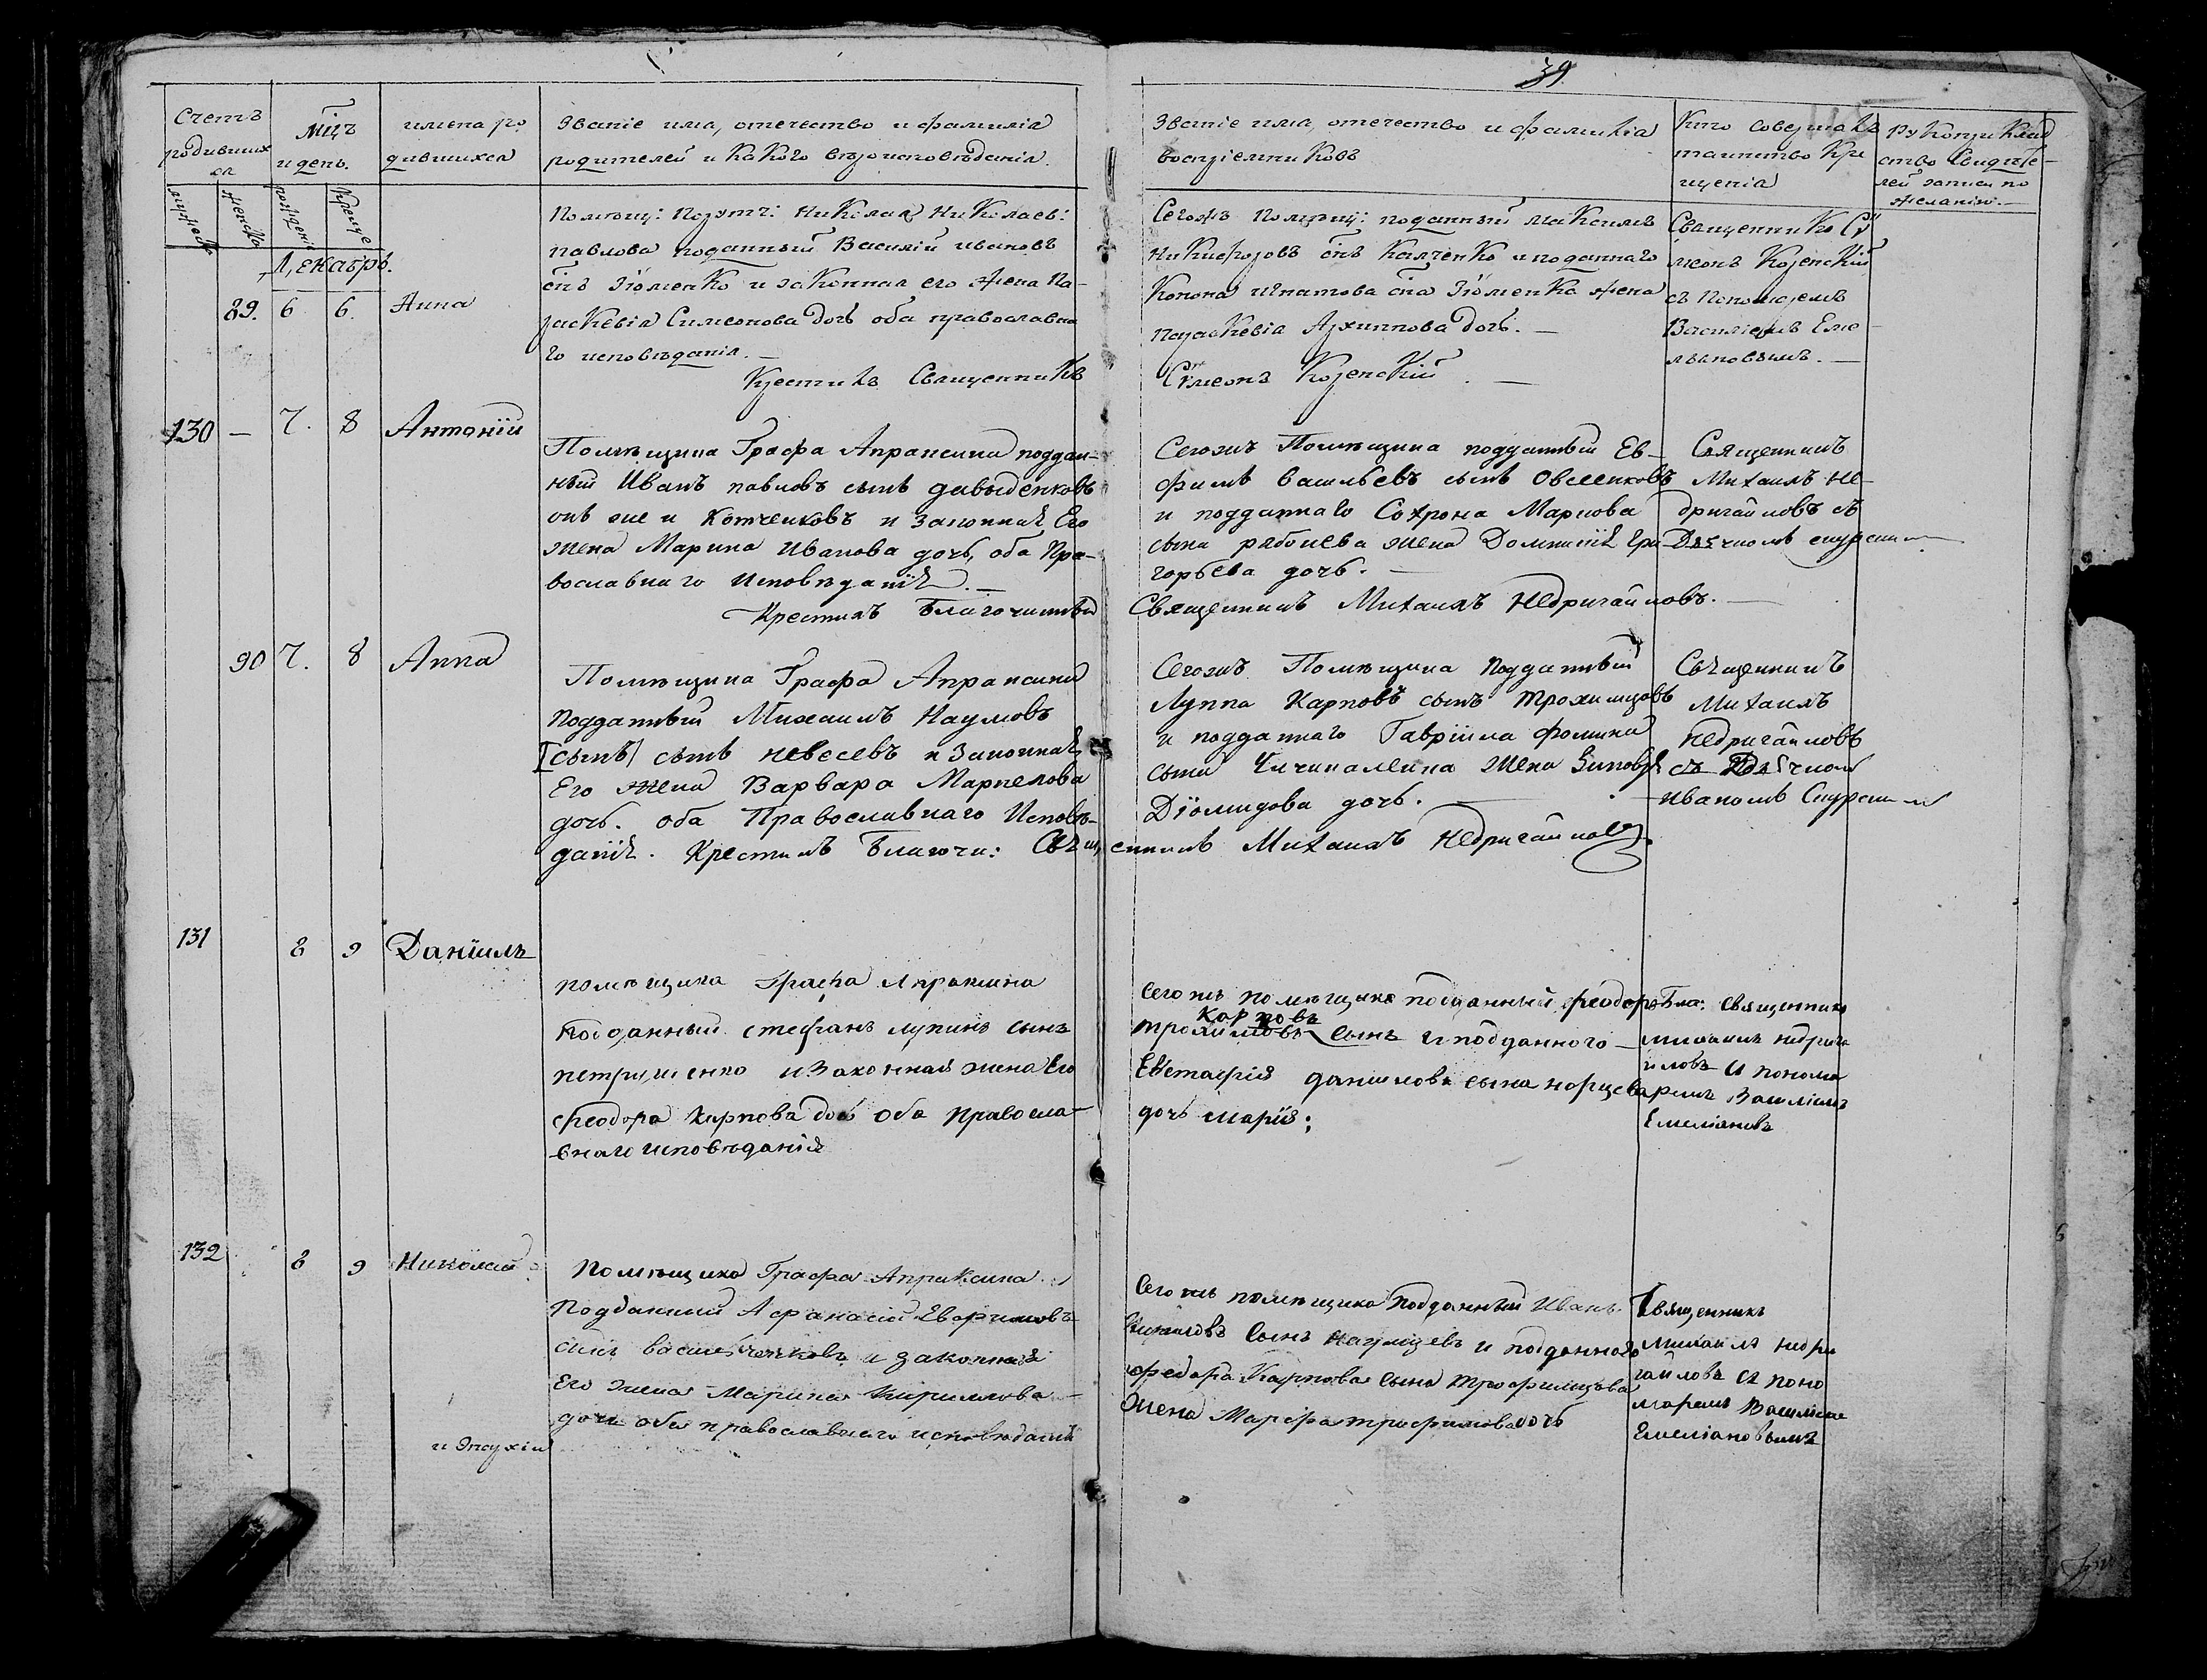 39
Счетъ
родивших
ся
мужеска
женска
Мцъ
и день.
рожденiя
Креще
имена ро
дившихся
Званiе има, отечество и фамилiя
родителей и Какого вѣроисповѣданiя.
Званiе има, отечество и фамилiя
воспрiемниковъ
Кто совершалъ
таинство Кре
щенiя
РуКоприКлад
ство Свидѣте-
лей записи по
желанiю.
Декабрь.
89. 6 6. Анна
Помѣщ: Поруч: НиКолая НиКолаев:
павлова поданный Василiй ивановъ
снъ Зюменко и законная его жена Па-
расКевiя Симеонова дочь оба православна
го исповѣданiя.
Крестилъ СвященниКъ
Сегожъ Помѣщ: поданный МаКсимъ
НиКифоровъ снъ Калченко и поданнаго
Конона игнатова сна Зюменка жена
Параскевiя Архиппова дочь.
Сѵмеонъ Козенскiй
СвященниКъ Сѵ
меонъ Козенскiй
съ Пономаремъ
Василiемъ Еме
льяновымъ.
130 — 7. 8 Антонiй
Помѣщика Графа Апраксина поддан-
ный Иванъ павловъ сынъ давыденковъ
онъ же и Котченковъ и Законная Его
жена Марина Иванова дочь, оба Пра-
вославнаго Исповѣданiя.
Крестилъ Благочинный
Сегожъ Помѣщика подданный Ев-
фимъ васильевъ сынъ Овсеенковъ
и подданнаго Софрона Маркова
сына рябоцева жена Домникiя Гри-
горьева дочь.
Священникъ Михаилъ Недригайловъ.
Священникъ
Михаилъ Не-
дригайловъ съ
Дьячкомъ
90 7. 8 Анна
Помѣщика Графа Апраксина
подданный Михаилъ Наумовъ
[сынъ] сынъ невесевъ и Законная
Его жена Варвара Маркелова
дочь. оба Православнаго Исповѣ-
данiя. Крестилъ Благочи: Священникъ Михаилъ Недригайловъ
Сегожъ Помѣщика Подданный
Луппа Карповъ сынъ Трохимцовъ
и подданнаго Гаврiила фомина
сына жена
Дiомидова дочь.
Священникъ
Михаилъ
Недригайловъ
съ Дьячкомъ
Иваномъ
131 8 9 Данiилъ
помѣщика Графа Апраксина
подданный стефанъ лупинъ сынъ
петрушенко и законная жена Его
феодора Карпова дочь оба православ-
внаго исповѣданiя
Сего жъ помѣщика подданный феодоръ
Карповъ
трохимовъ сынъ и подданного
Евстафiя данилова сына норцева
дочь марiя;
Бла: священникъ
михаилъ недрига
иловъ и понома
ремъ Василiемъ
Емелiановъ
132 8 9 Николай
Помѣщика Графа Апраксина
Подданный Афанасiй Евфимовъ
сынъ васильченковъ и законная
Его жена Марина Кириллова
дочь оба православнаго исповѣданiя
Сего жъ помѣщика подданный Иванъ
сынъ Наумцевъ и подданнаго
федора Карпова сына Трофимцова
жена Марфа трофимова дочь
Священникъ
Михаилъ недри
гайловъ съ поно
маремъ Василiем
Емелiановымъ